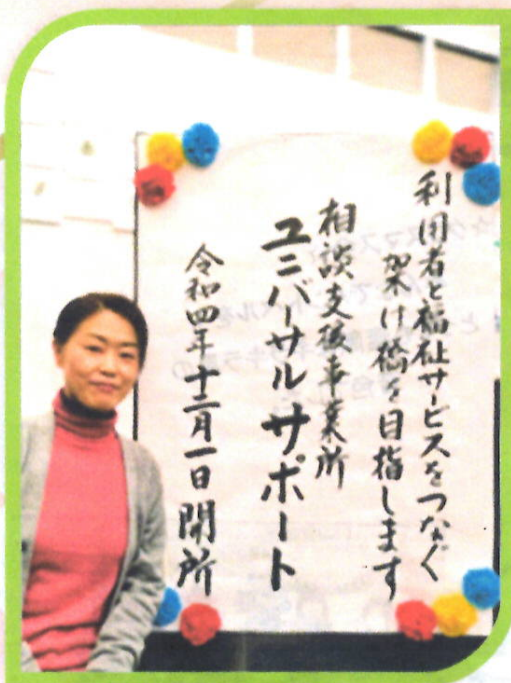 利用者と福祉サービスをつなぐ
架け橋を目指します
相談支援事業所
ユニバーサル サポート
令和四年十二月一日 開所